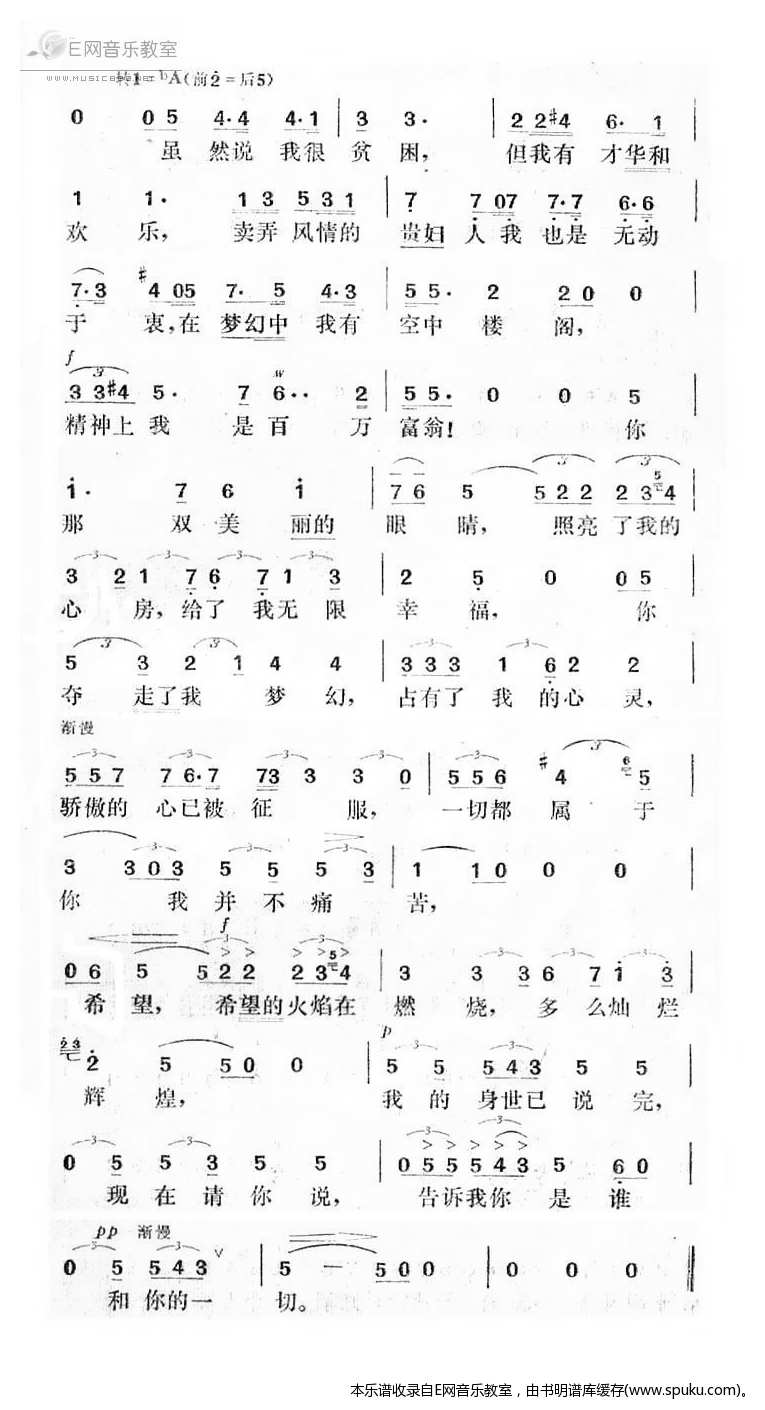 E网音乐教室
WWW.MUSICEOL.NET
转1=bA(前2̇=后5)
0 05 4·4 4·1 | 3 3· | 22#4 6· 1
虽 然说 我很 贫 困， 但我有 才华和
1 1· 13 531 | 7 707 7·7 6·6
欢 乐， 卖弄 风情的 贵妇 人我 也是 无动
7·3 #4 05 7· 5 4·3 | 55· 2 20 0 |
于 衷，在 梦幻中 我有 空中 楼 阁，
f
3 3#4 5· 7 6·· 2 | 55· 0 0 5 |
精神上 我 是 百 万 富翁！ 你
1· 7 6 1 | 76 5 522 2354 |
那 双 美 丽的 眼 睛， 照亮 了我的
3 21 76 71 3 | 2 5 0 05 |
心 房，给了 我无 限 幸 福， 你
5 3 2 1 4 4 | 333 1 62 2 |
夺 走了我 梦 幻， 占有了 我 的心 灵，
渐慢
557 76·7 73 3 3 0 | 556 #4 6 5 |
骄傲的 心已被 征 服， 一切都 属 于
3 303 5 5 5 3 | 1 10 0 0 |
你 我 并 不 痛 苦，
f
06 5 522 2354 | 3 3 36 71 3 |
希 望， 希望的火焰在 燃 烧，多 么灿 烂
p
23 2 5 50 0 | 5 5 543 5 5 |
辉 煌， 我 的 身世已 说 完，
0 5 5 3 5 5 | 055543 5 60 |
现 在 请 你 说， 告诉我你 是 谁
pp 渐慢
0 5 543 ∨ | 5 — 500 | 0 0 0 ‖
和 你的一 切。
本乐谱收录自E网音乐教室，由书明谱库缓存(www.spuku.com)。